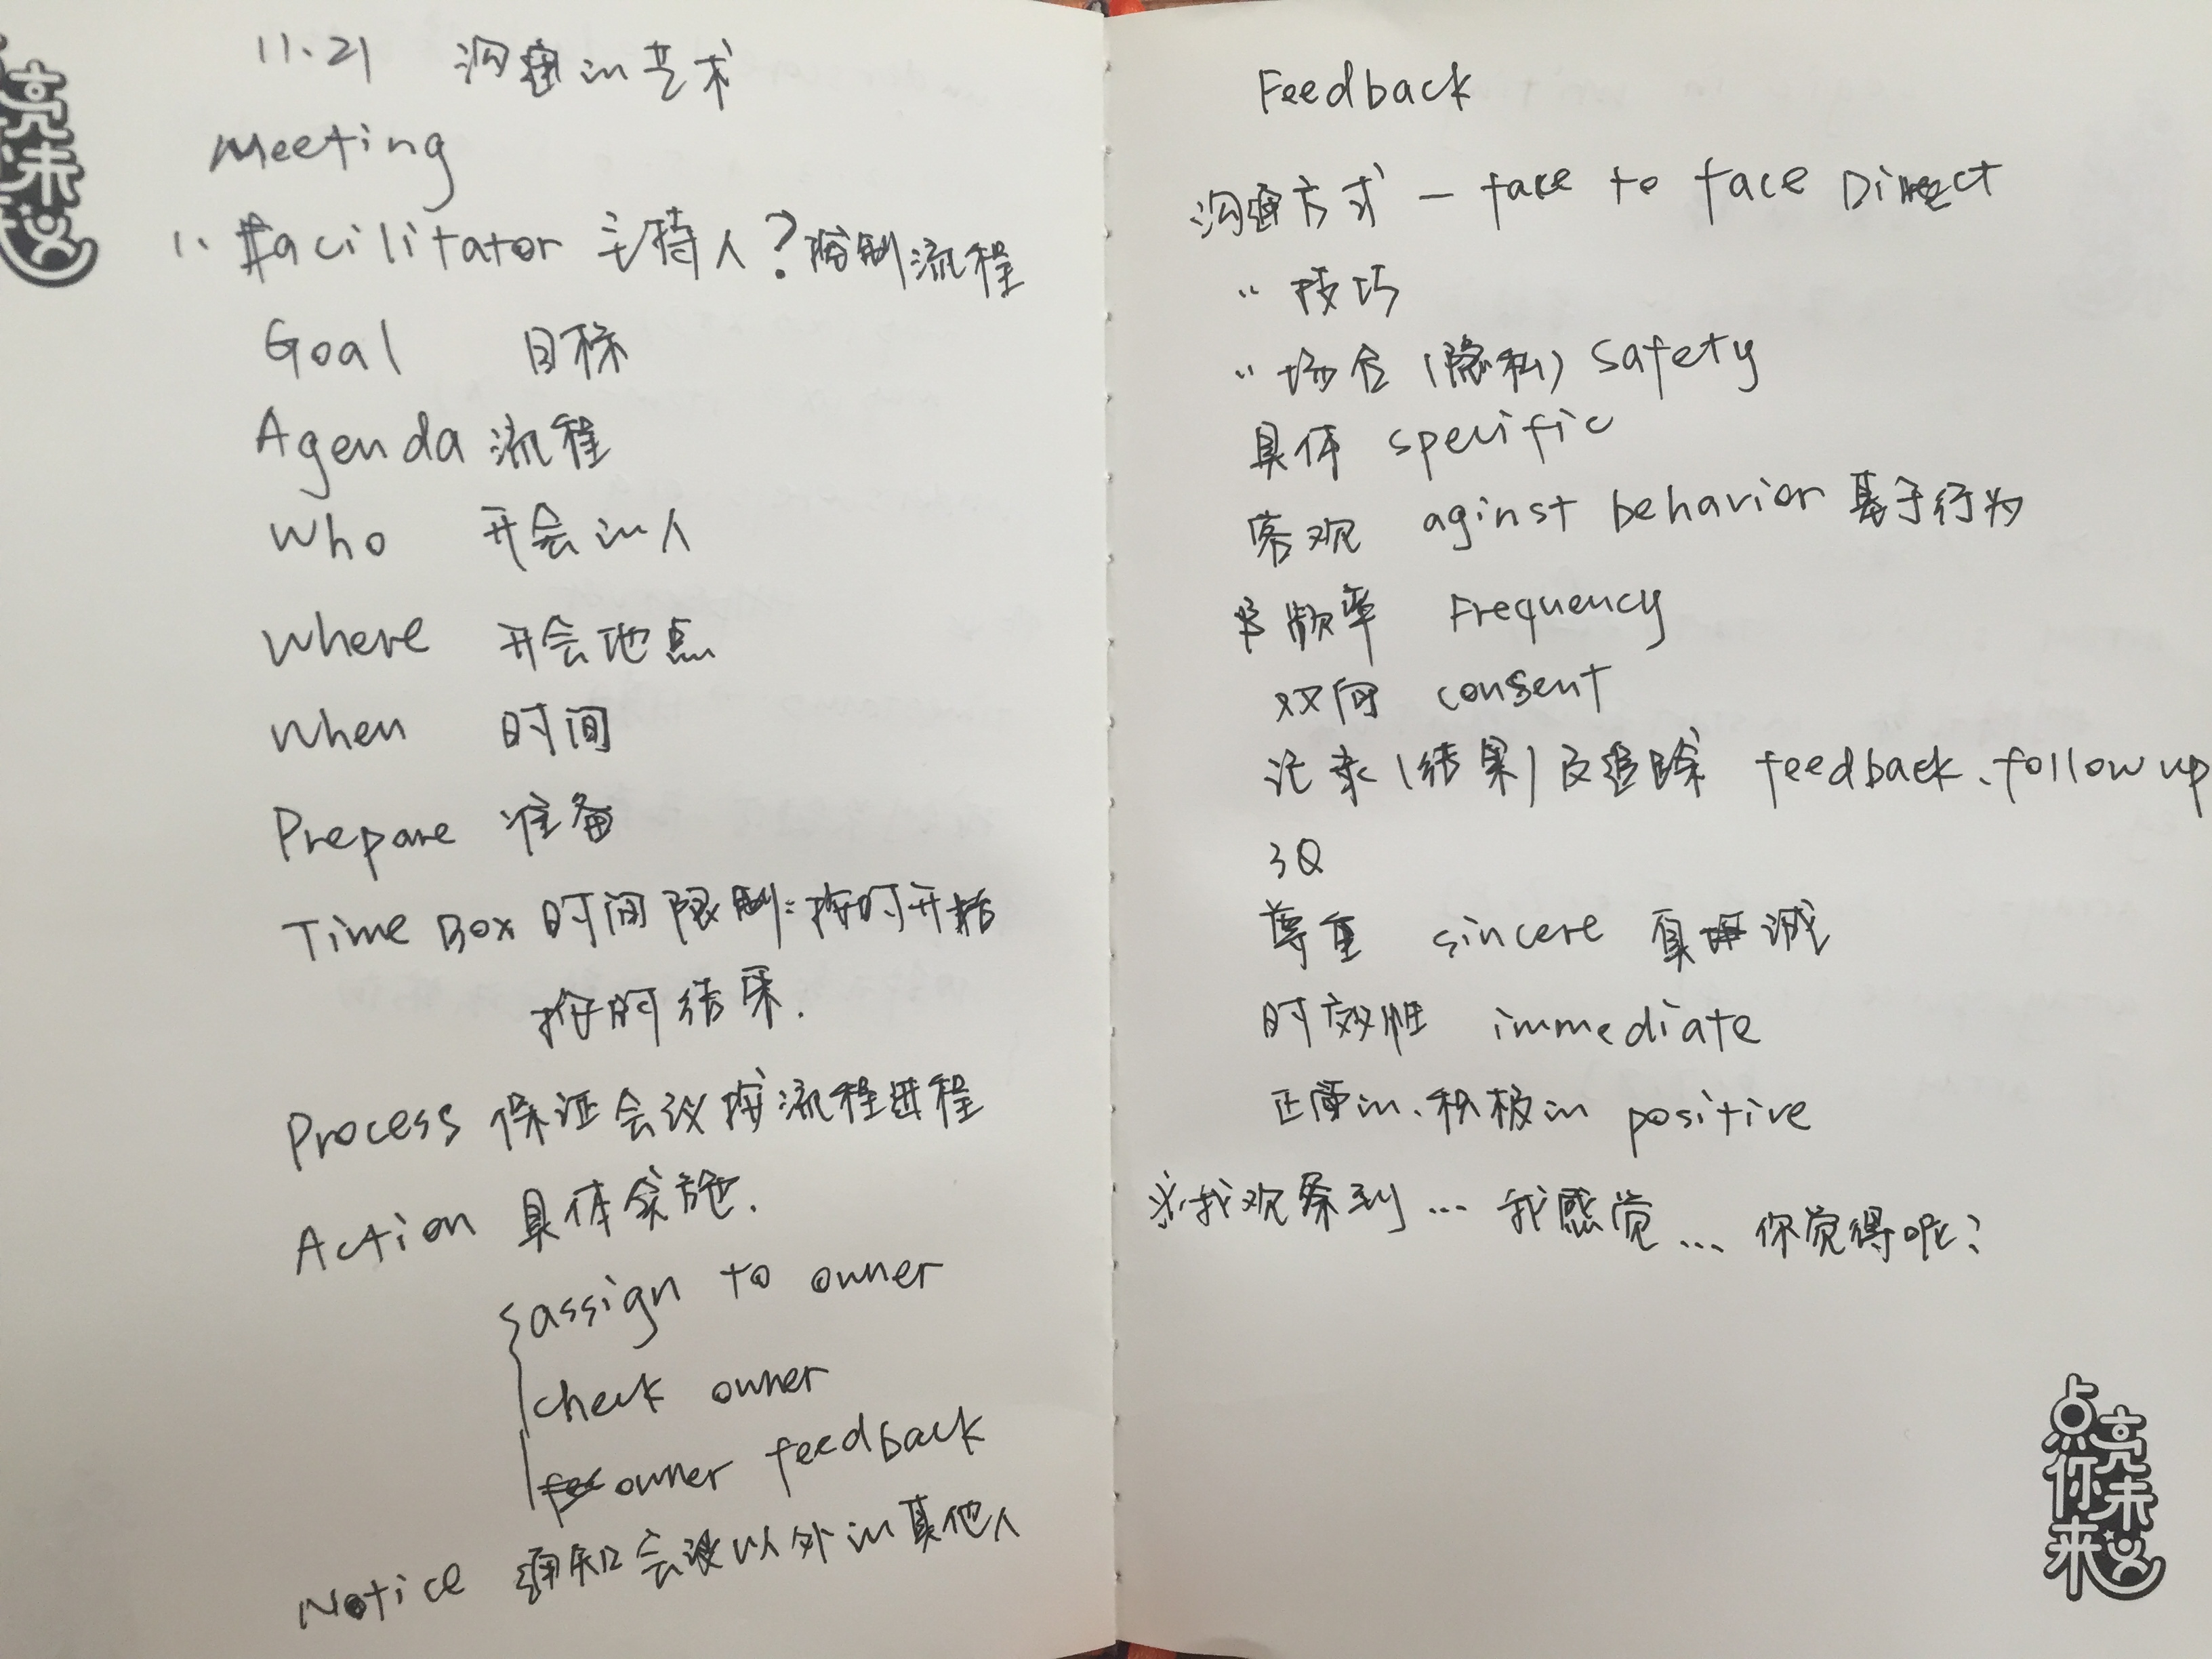 11.21 沟通的艺术
Meeting
1. facilitator 主持人? 控制流程
Goal 目标
Agenda 流程
Who 开会的人
Where 开会地点
When 时间
Prepare 准备
Time Box 时间限制:按时开始
按时结果.
Process 保证会议按流程进程
Action 具体实施.
assign to owner
check owner
owner feedback
Notice 通知会议以外的其他人
Feedback
沟通方式 — face to face Direct
" 技巧
" 场合(隐私) safety
具体 specific
客观 aginst behavior 基于行为
频率 Frequency
双向 consent
记录(结果)及追踪 feedback.followup
3Q
尊重 sincere 真诚
时效性 immediate
正面的、积极的 positive
※我观察到... 我感觉... 你觉得呢?
点亮你未来